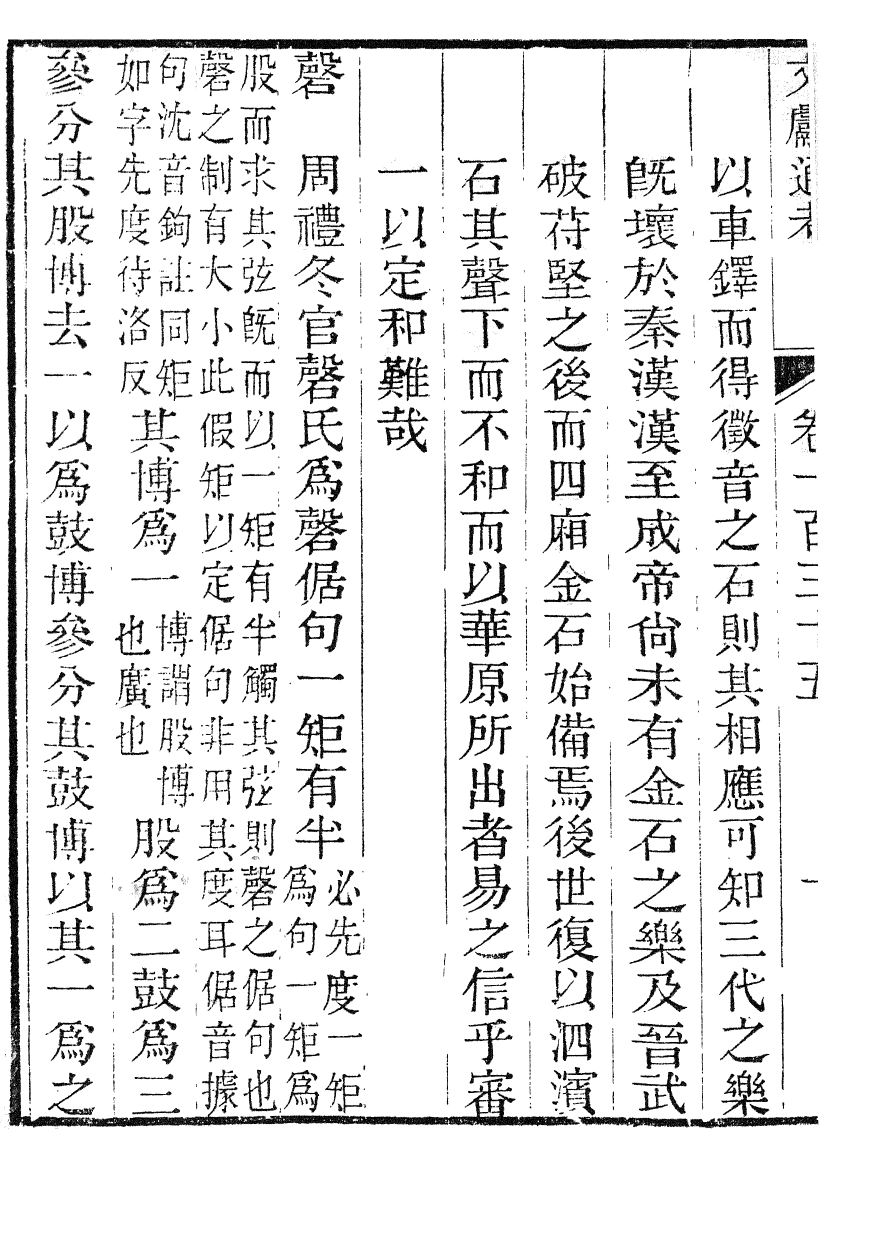 文獻通考 卷一百三十五 一
以車鐸而得徵音之石則其相應可知三代之樂
旣壞於秦漢漢至成帝尙未有金石之樂及晉武
破苻堅之後而四廂金石始備焉後世復以泗濱
石其聲下而不和而以華原所出者易之信乎審
一以定和難哉
磬 周禮冬官磬氏爲磬倨句一矩有半 必先度一矩
爲句一矩爲
股而求其弦旣而以一矩有半觸其弦則磬之倨句也
磬之制有大小此假矩以定倨句非用其度耳倨音據
句沈音鉤註同矩
如字先度待洛反
其博爲一
博謂股博
也廣也
股爲二鼓爲三
參分其股博去一以爲鼓博參分其鼓博以其一爲之